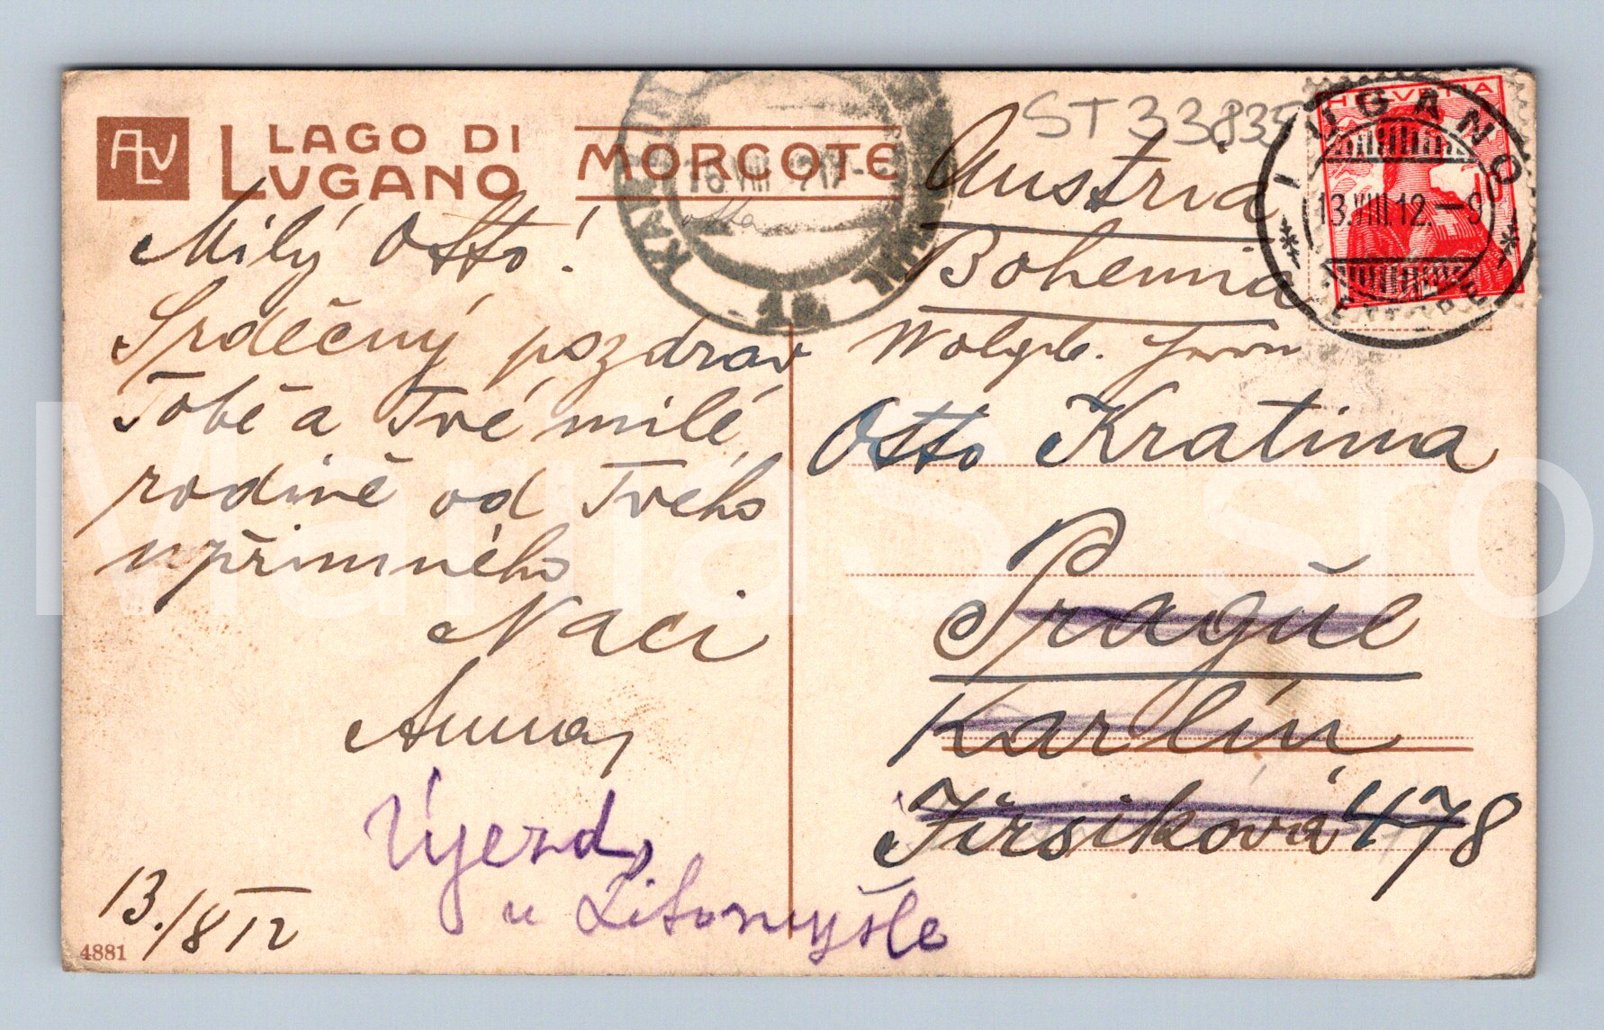 ALV
LAGO DI
LVGANO
MORCOTE
ST 33835
HELVETIA
LUGANO
13.VIII.12.–9
Milý Otto!
Srdečný pozdrav
Tobě a Tvé milé
rodině od Tvého
upřímného
Naci
Anna
Újezd,
u Litomyšle
13./8 12
4881
Austria
Bohemia
Wolgeb.
Otto Kratina
Prague
Karlín
Jirsíková 478